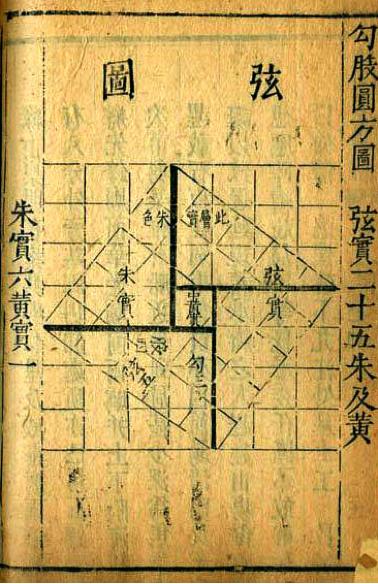 勾股圓方圖　弦實二十五朱及黃
弦圖
此層實朱色
弦實
朱實
黃實
勾三
弦五
朱實六黃實一